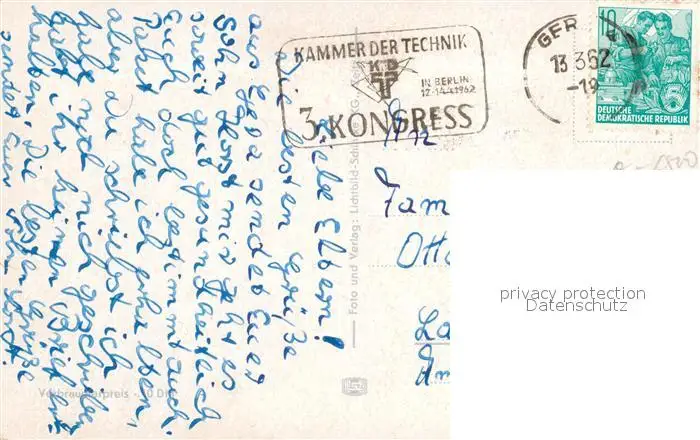 KAMMER DER TECHNIK
KDT
IN BERLIN
12.-14.4.1962
3. KONGRESS
GER
13 3 62
-19
10
DEUTSCHE
DEMOKRATISCHE REPUBLIK
An
Fam
Otto
La
Am
privacy protection
Datenschutz
Foto und Verlag: Lichtbild-
Verbraucherpreis -,20 DM
Liebe Eltern!
die besten Grüße
aus Gera sendet Euer
Sohn Horst mir geht es
soweit gut gesundheitlich
Euch doch bestimmt auch.
Paket habe ich erhalten,
aber du schriebst ich
habe noch nicht geschrieben
habt ihr keinen Brief er-
halten. Die besten Grüße
sendet Euer Sohn Horst.